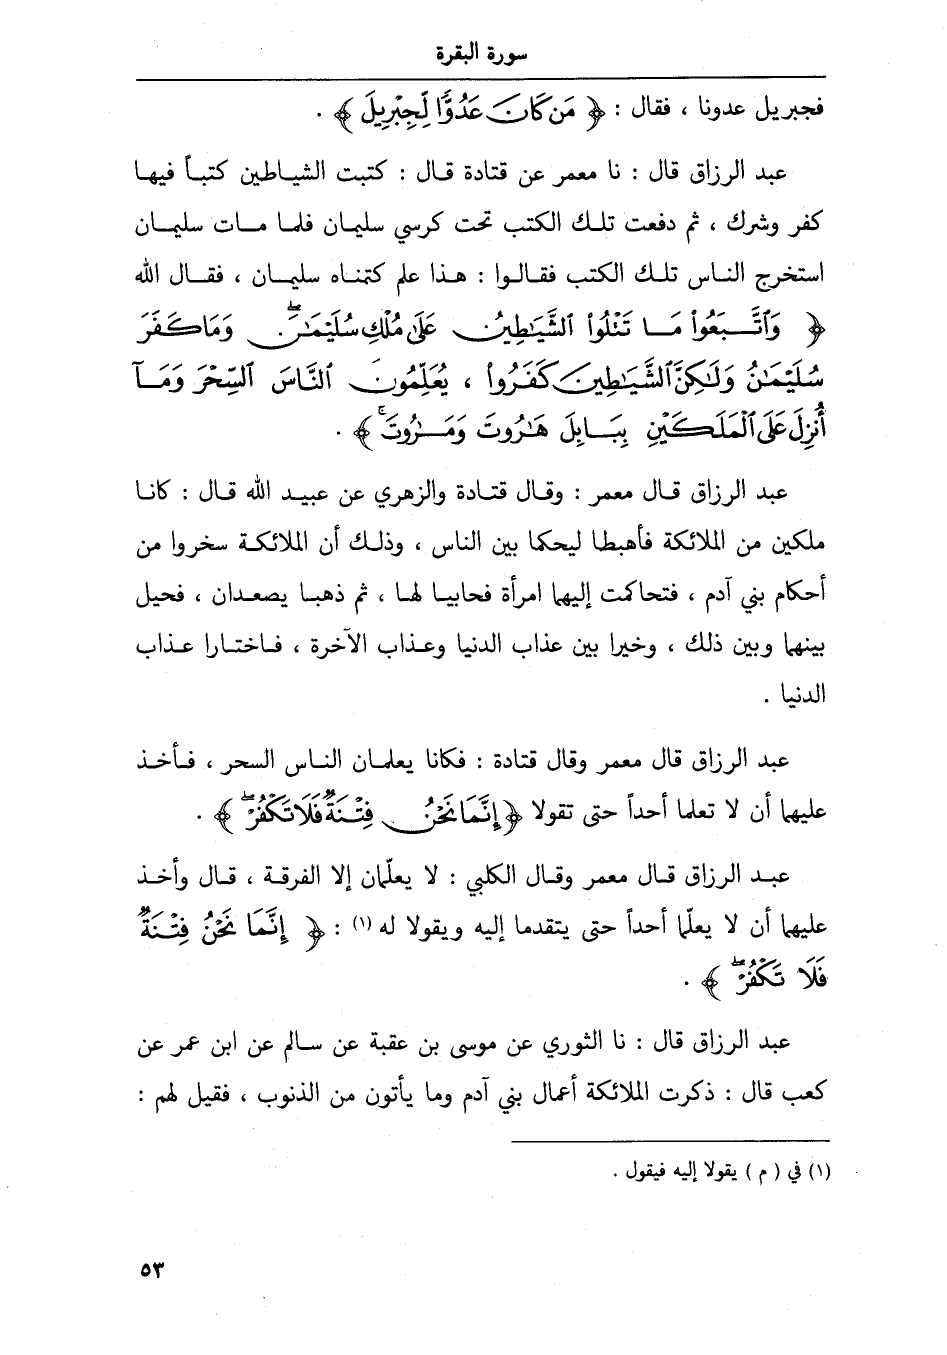 سورة البقرة
فجبريل عدونا ، فقال : ﴿ مَن كَانَ عَدُوًّا لِّجِبْرِيلَ ﴾ .
عبد الرزاق قال : نا معمر عن قتادة قال : كتبت الشياطين كتباً فيها
كفر وشرك ، ثم دفعت تلك الكتب تحت كرسي سليمان فلما مات سليمان
استخرج الناس تلك الكتب فقالوا : هذا علم كتمناه سليمان ، فقال الله
﴿ وَٱتَّبَعُوا۟ مَا تَتْلُوا۟ ٱلشَّيَـٰطِينُ عَلَىٰ مُلْكِ سُلَيْمَـٰنَ ۖ وَمَا كَفَرَ
سُلَيْمَـٰنُ وَلَـٰكِنَّ ٱلشَّيَـٰطِينَ كَفَرُوا۟ ، يُعَلِّمُونَ ٱلنَّاسَ ٱلسِّحْرَ وَمَآ
أُنزِلَ عَلَى ٱلْمَلَكَيْنِ بِبَابِلَ هَـٰرُوتَ وَمَـٰرُوتَ ۚ ﴾ .
عبد الرزاق قال معمر : وقال قتادة والزهري عن عبيد الله قال : كانا
ملكين من الملائكة فأهبطا ليحكما بين الناس ، وذلك أن الملائكة سخروا من
أحكام بني آدم ، فتحاكمت إليهما امرأة فحابيا لها ، ثم ذهبا يصعدان ، فحيل
بينهما وبين ذلك ، وخيرا بين عذاب الدنيا وعذاب الآخرة ، فاختارا عذاب
الدنيا .
عبد الرزاق قال معمر وقال قتادة : فكانا يعلمان الناس السحر ، فأخذ
عليهما أن لا تعلما أحداً حتى تقولا ﴿ إِنَّمَا نَحْنُ فِتْنَةٌ فَلَا تَكْفُرْ ۖ ﴾ .
عبد الرزاق قال معمر وقال الكلبي : لا يعلّمان إلا الفرقة ، قال وأخذ
عليهما أن لا يعلّما أحداً حتى يتقدما إليه ويقولا له (١) : ﴿ إِنَّمَا نَحْنُ فِتْنَةٌ
فَلَا تَكْفُرْ ۖ ﴾ .
عبد الرزاق قال : نا الثوري عن موسى بن عقبة عن سالم عن ابن عمر عن
كعب قال : ذكرت الملائكة أعمال بني آدم وما يأتون من الذنوب ، فقيل لهم :
(١) في ( م ) يقولا إليه فيقول .
٥٣